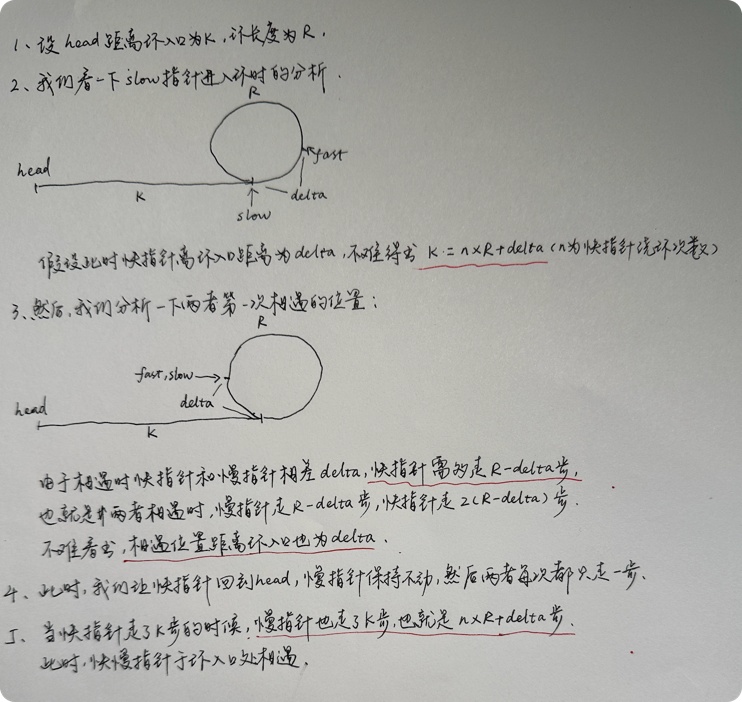 1、设head距离环入口为K,环长度为R,
2、我们看一下slow指针进入环时的分析.
R
fast
head
K
delta
slow
假设此时快指针离环入口距离为delta,不难得出 K = n×R+delta (n为快指针绕环次数)
3、然后,我们分析一下两者第一次相遇的位置:
R
fast,slow
delta
head
K
由于相遇时快指针和慢指针相差delta,快指针需多走R-delta步,
也就是两者相遇时,慢指针走R-delta步,快指针走2(R-delta)步.
不难看出,相遇位置距离环入口也为delta.
4、此时,我们让快指针回到head,慢指针保持不动,然后两者每次都只走一步、
5、当快指针走了K步的时候,慢指针也走了K步,也就是n×R+delta步.
此时,快慢指针于环入口处相遇.